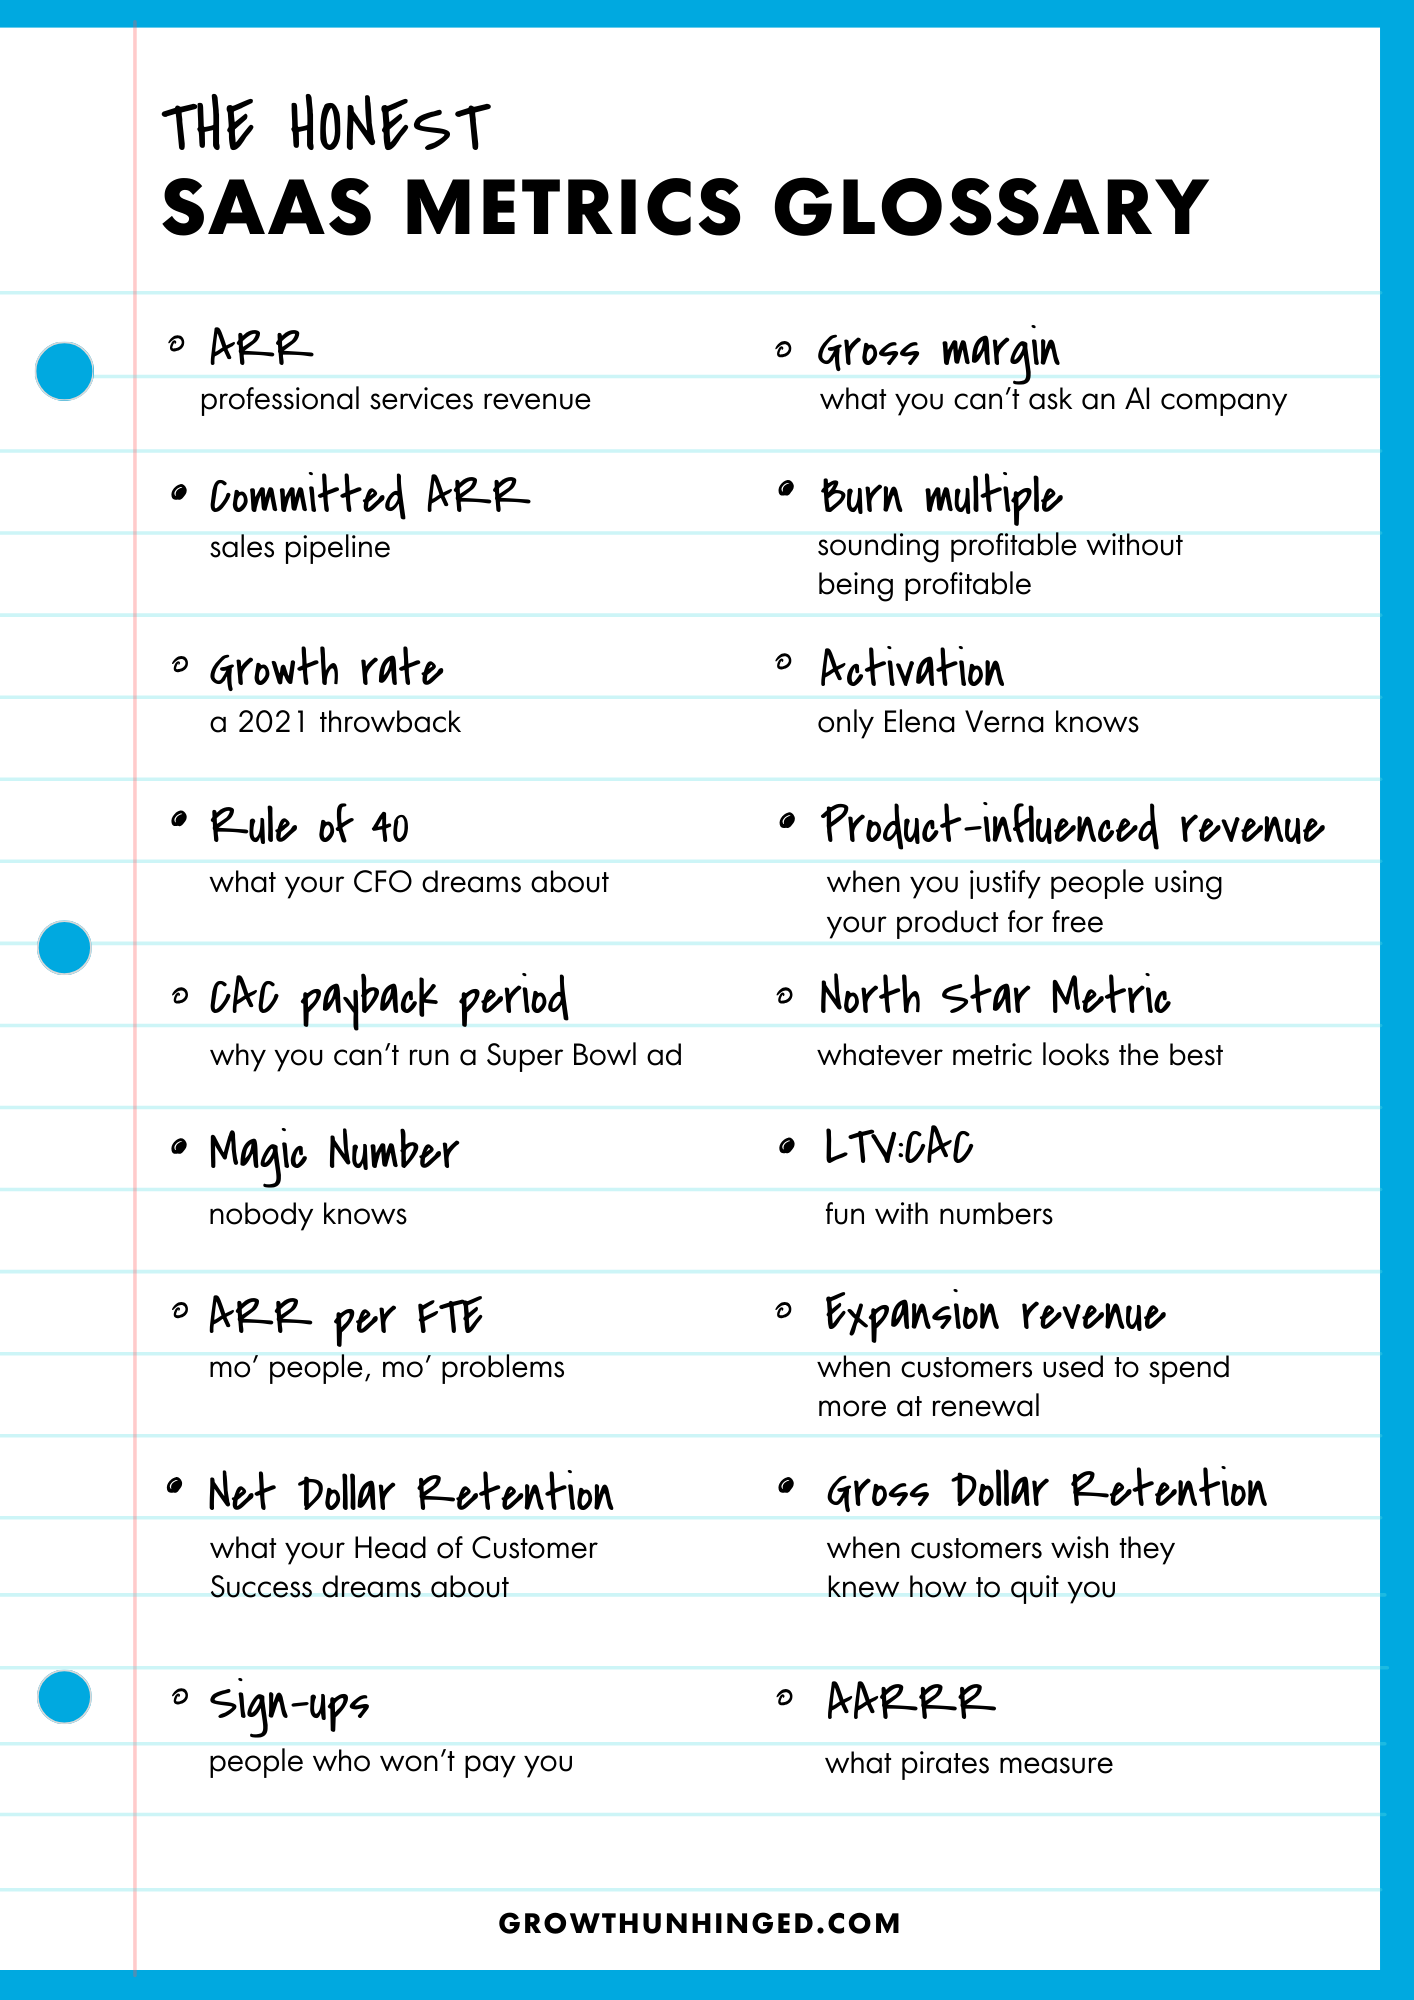 THE HONEST
SAAS METRICS GLOSSARY
ARR
professional services revenue
Committed ARR
sales pipeline
Growth rate
a 2021 throwback
Rule of 40
what your CFO dreams about
CAC payback period
why you can't run a Super Bowl ad
Magic Number
nobody knows
ARR per FTE
mo' people, mo' problems
Net Dollar Retention
what your Head of Customer
Success dreams about
Sign-ups
people who won't pay you
Gross margin
what you can't ask an AI company
Burn multiple
sounding profitable without
being profitable
Activation
only Elena Verna knows
Product-influenced revenue
when you justify people using
your product for free
North Star Metric
whatever metric looks the best
LTV:CAC
fun with numbers
Expansion revenue
when customers used to spend
more at renewal
Gross Dollar Retention
when customers wish they
knew how to quit you
AARRR
what pirates measure
GROWTHUNHINGED.COM